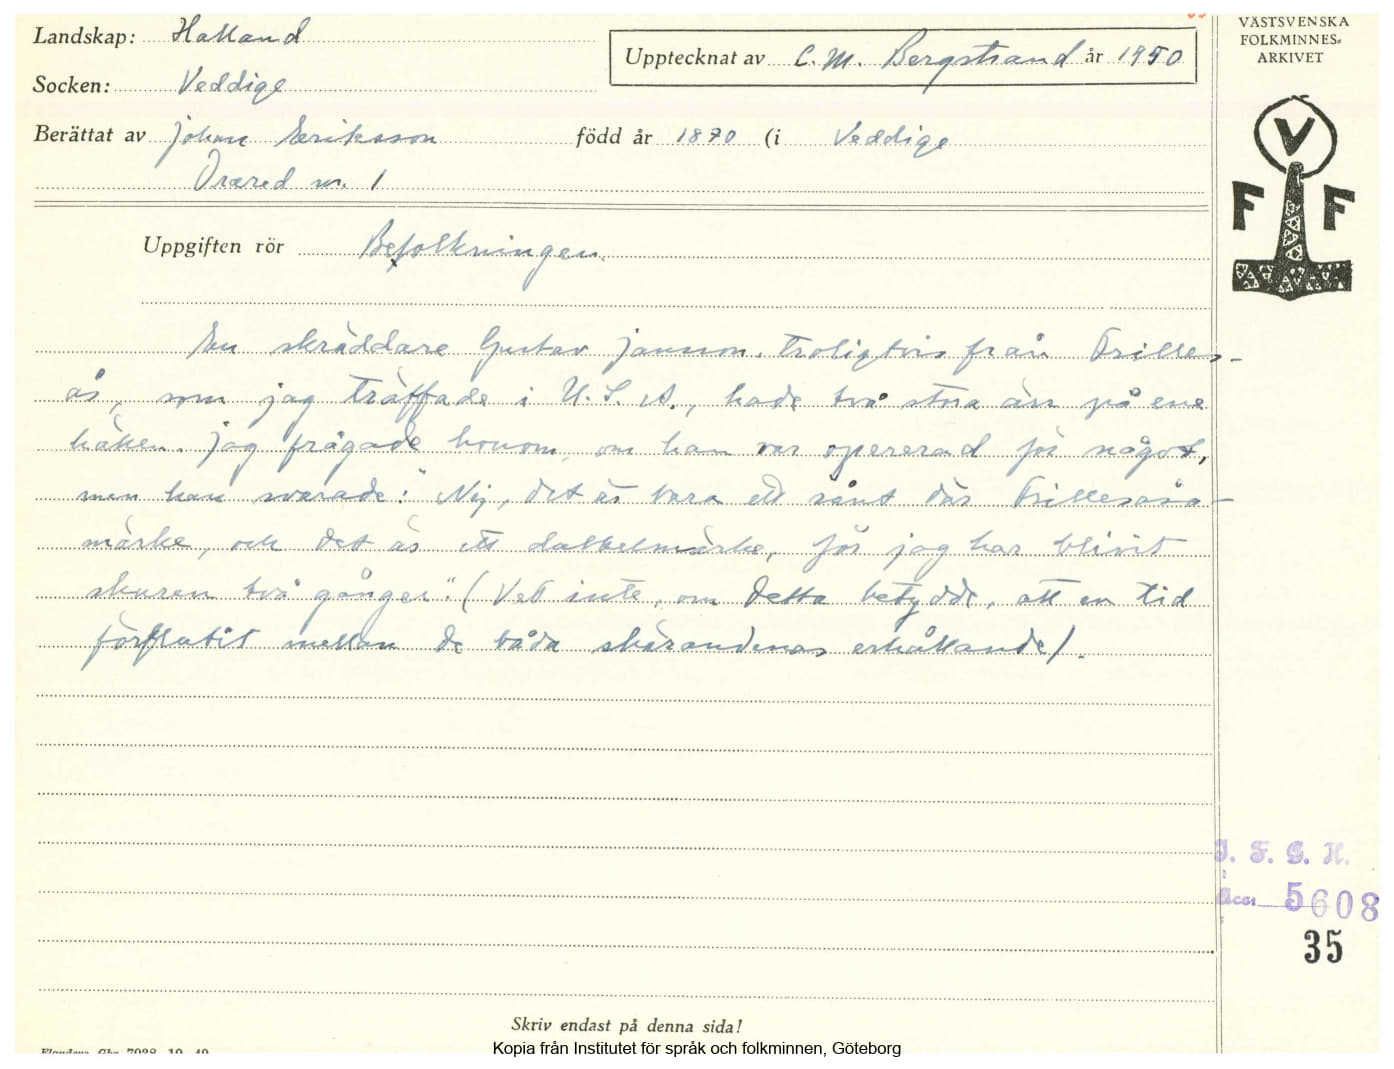 Landskap: Halland
Upptecknat av C. M. Bergstrand år 1950
VÄSTSVENSKA
FOLKMINNES-
ARKIVET
Socken: Veddige
Berättat av Johan Eriksson född år 1870 (i Veddige
Orared nr. 1
V
F F
Uppgiften rör Befolkningen.
En skräddare Gustav Janson, troligtvis från Frilles-
ås, som jag träffade i U.S.A., hade två stora ärr på ene
käken. Jag frågade honom, om han var opererad för något,
men han svarade: "Nej, det är bara ett sånt där Frillesåsa-
märke, och det är ett dubbelmärke, för jag har blivit
skuren två gånger." (Vet inte, om detta betydde, att en tid
förflutit mellan de båda skärandenas erhållande).
I. F. G. H.
Acc. 5608
35
Skriv endast på denna sida!
Flanders Gbg 7038 10 49
Kopia från Institutet för språk och folkminnen, Göteborg